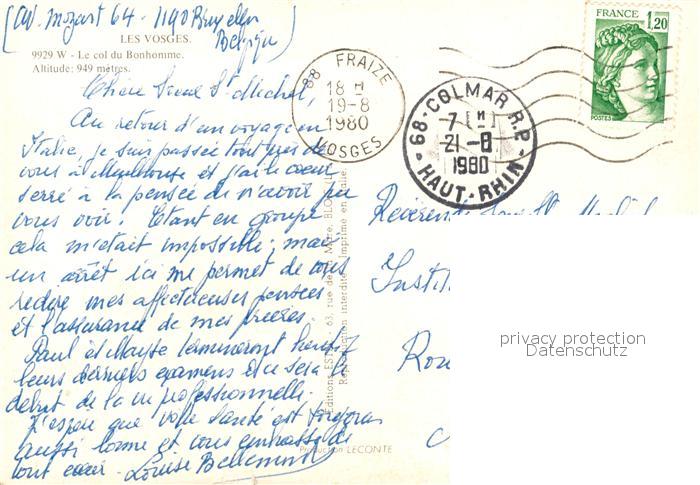 (Av. Mozart 64 - 1190 Bruxelles
Belgique)
LES VOSGES.
9929 W - Le col du Bonhomme.
Altitude: 949 mètres.
Chère Soeur St Michel,
Au retour d'un voyage en
Italie, je suis passée tout près de
vous à Mulhouse et j'ai le coeur
serré à la pensée de n'avoir pu
vous voir. Etant en groupe
cela m'était impossible; mais
un arrêt ici me permet de vous
redire mes affectueuses pensées
et l'assurance de mes prières.
Paul et termineront
leurs derniers examens et ce sera le
début de la vie professionnelle.
J'espère que votre santé est toujours
aussi bonne et vous embrasse de
tout coeur - Louise
88 FRAIZE
18 H
19-8
1980
VOSGES
68-COLMAR R.P.
7 H
21-8
1980
HAUT-RHIN
FRANCE
1,20
POSTES
Révérende Soeur St
Instit
Editions EST 63, rue de la
Reproduction interdite. Imprimé en
Production LECONTE
privacy protection
Datenschutz